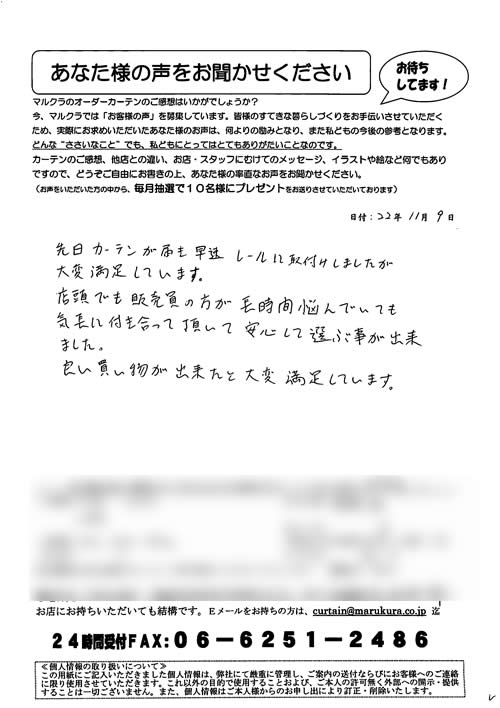 あなた様の声をお聞かせください
お待ち
してます!
マルクラのオーダーカーテンのご感想はいかがでしょうか?
今、マルクラでは「お客様の声」を募集しています。皆様のすてきな暮らしづくりをお手伝いさせていただく
ため、実際にお求めいただいたあなた様のお声は、何よりの励みとなり、また私どもの今後の参考となります。
どんな“ささいなこと”でも、私どもにとってはとてもありがたいことなのです。
カーテンのご感想、他店との違い、お店・スタッフにむけてのメッセージ、イラストや絵など何でもあり
ですので、どうぞご自由にお書きの上、あなた様の率直なお声をお聞かせください。
(お声をいただいた方の中から、毎月抽選で10名様にプレゼントをお送りさせていただいております)
日付:22年11月9日
先日カーテンが届き早速レールに取付けしましたが
大変満足しています。
店頭でも販売員の方が長時間悩んでいても
気長に付き合って頂いて安心して選ぶ事が出来
ました。
良い買い物が出来たと大変満足しています。
お店にお持ちいただいても結構です。Eメールをお持ちの方は、curtain@marukura.co.jp 迄
24時間受付FAX:06-6251-2486
≪個人情報の取り扱いについて≫
この用紙にご記入いただきました個人情報は、弊社にて厳重に管理し、ご案内の送付ならびにお客様へのご連絡
に限り使用させていただきます。これ以外の目的で使用することおよび、ご本人の許可無く外部への開示・提供
することは一切ございません。また、個人情報はご本人様からのお申し出により訂正・削除いたします。